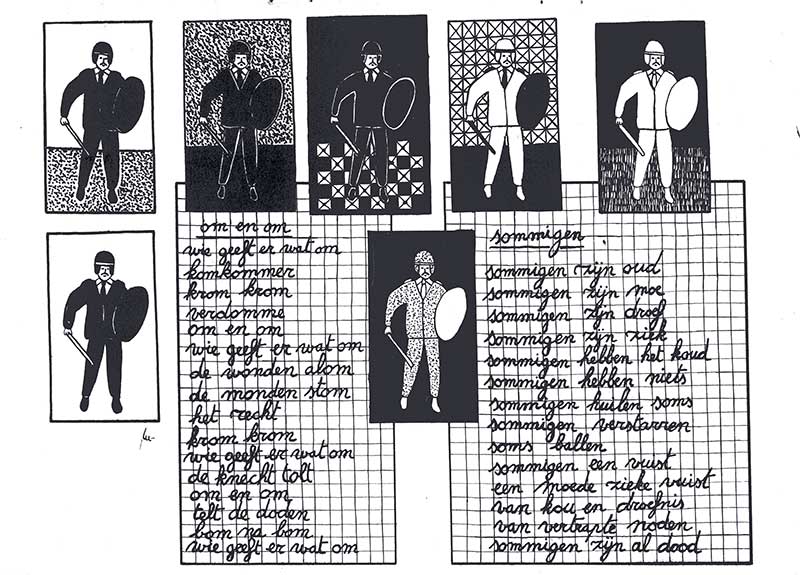 om en om
wie geeft er wat om
komkommer
krom krom
verdomme
om en om
wie geeft er wat om
de wonden alom
de monden stom
het recht
krom krom
wie geeft er wat om
de knecht tolt
om en om
telt de doden
bom na bom
wie geeft er wat om
sommigen
sommigen zijn oud
sommigen zijn moe
sommigen zijn droef
sommigen zijn ziek
sommigen hebben het koud
sommigen hebben niets
sommigen huilen soms
sommigen verstarren
soms ballen
sommigen een vuist
een moede zieke vuist
van kou en droefnis
van vertrapte noden
sommigen zijn al dood